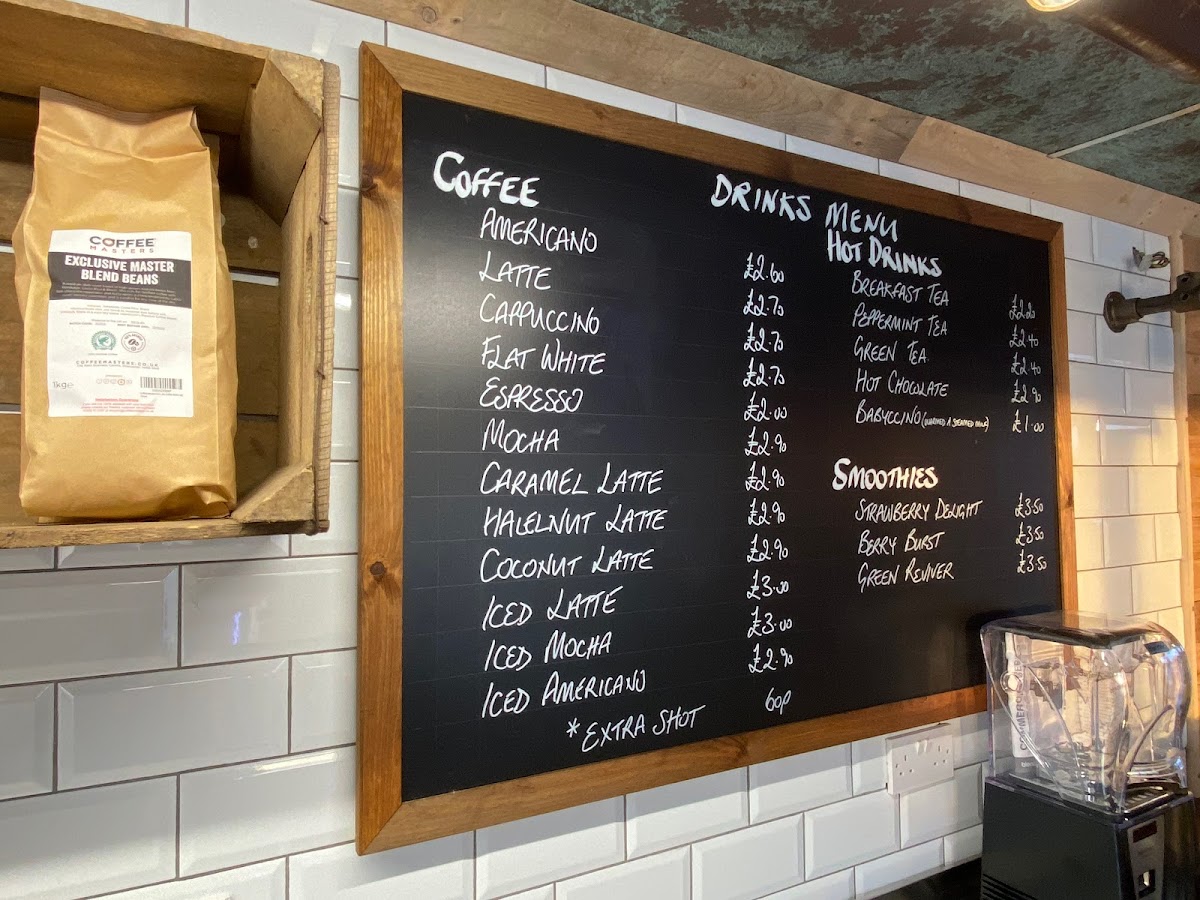 COFFEE
MASTERS
EXCLUSIVE MASTER
BLEND BEANS
COFFEEMASTERS.CO.UK
1kg e
DRINKS MENU
COFFEE
AMERICANO £2.60
LATTE £2.70
CAPPUCCINO £2.70
FLAT WHITE £2.70
ESPRESSO £2.00
MOCHA £2.90
CARAMEL LATTE £2.90
HALELNUT LATTE £2.90
COCONUT LATTE £2.90
ICED LATTE £3.00
ICED MOCHA £3.00
ICED AMERICANO £2.90
*EXTRA SHOT 60p
HOT DRINKS
BREAKFAST TEA £2.20
PEPPERMINT TEA £2.40
GREEN TEA £2.40
HOT CHOCOLATE £2.90
BABYCCINO £1.00
SMOOTHIES
STRAWBERRY DELIGHT £3.50
BERRY BURST £3.50
GREEN REVIVER £3.50